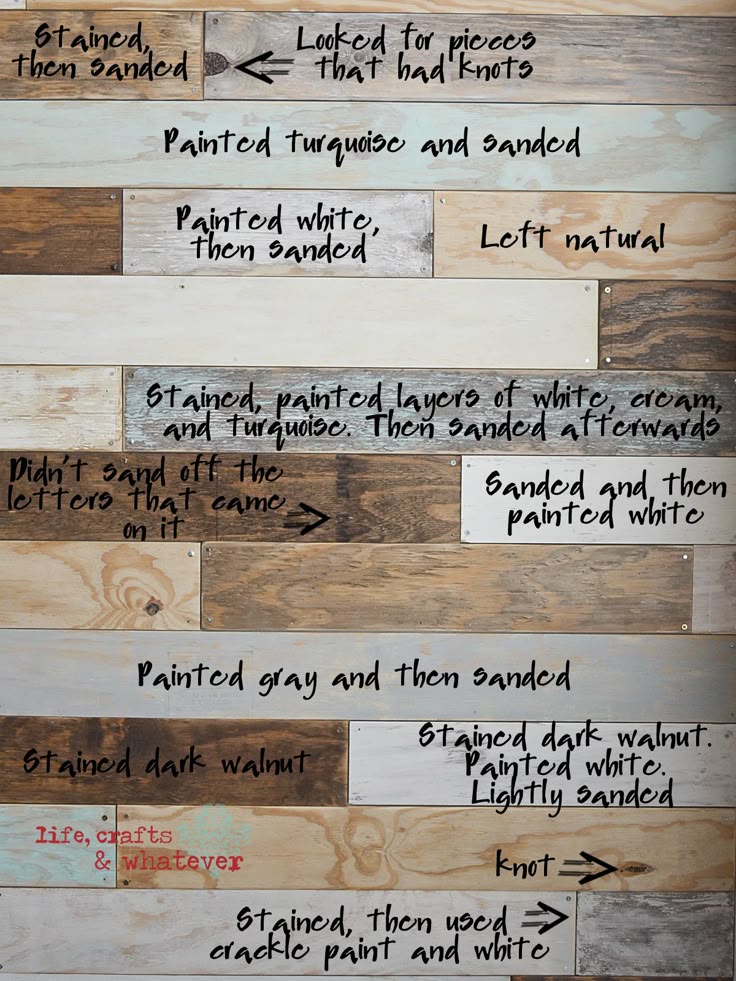 Stained,
then sanded
Looked for pieces
that had knots
Painted turquoise and sanded
Painted white,
then sanded
Left natural
Stained, painted layers of white, cream,
and turquoise. Then sanded afterwards
Didn't sand off the
letters that came
on it
Sanded and then
painted white
Painted gray and then sanded
Stained dark walnut
Stained dark walnut.
Painted white.
Lightly sanded
life, crafts
& whatever
knot
Stained, then used
crackle paint and white